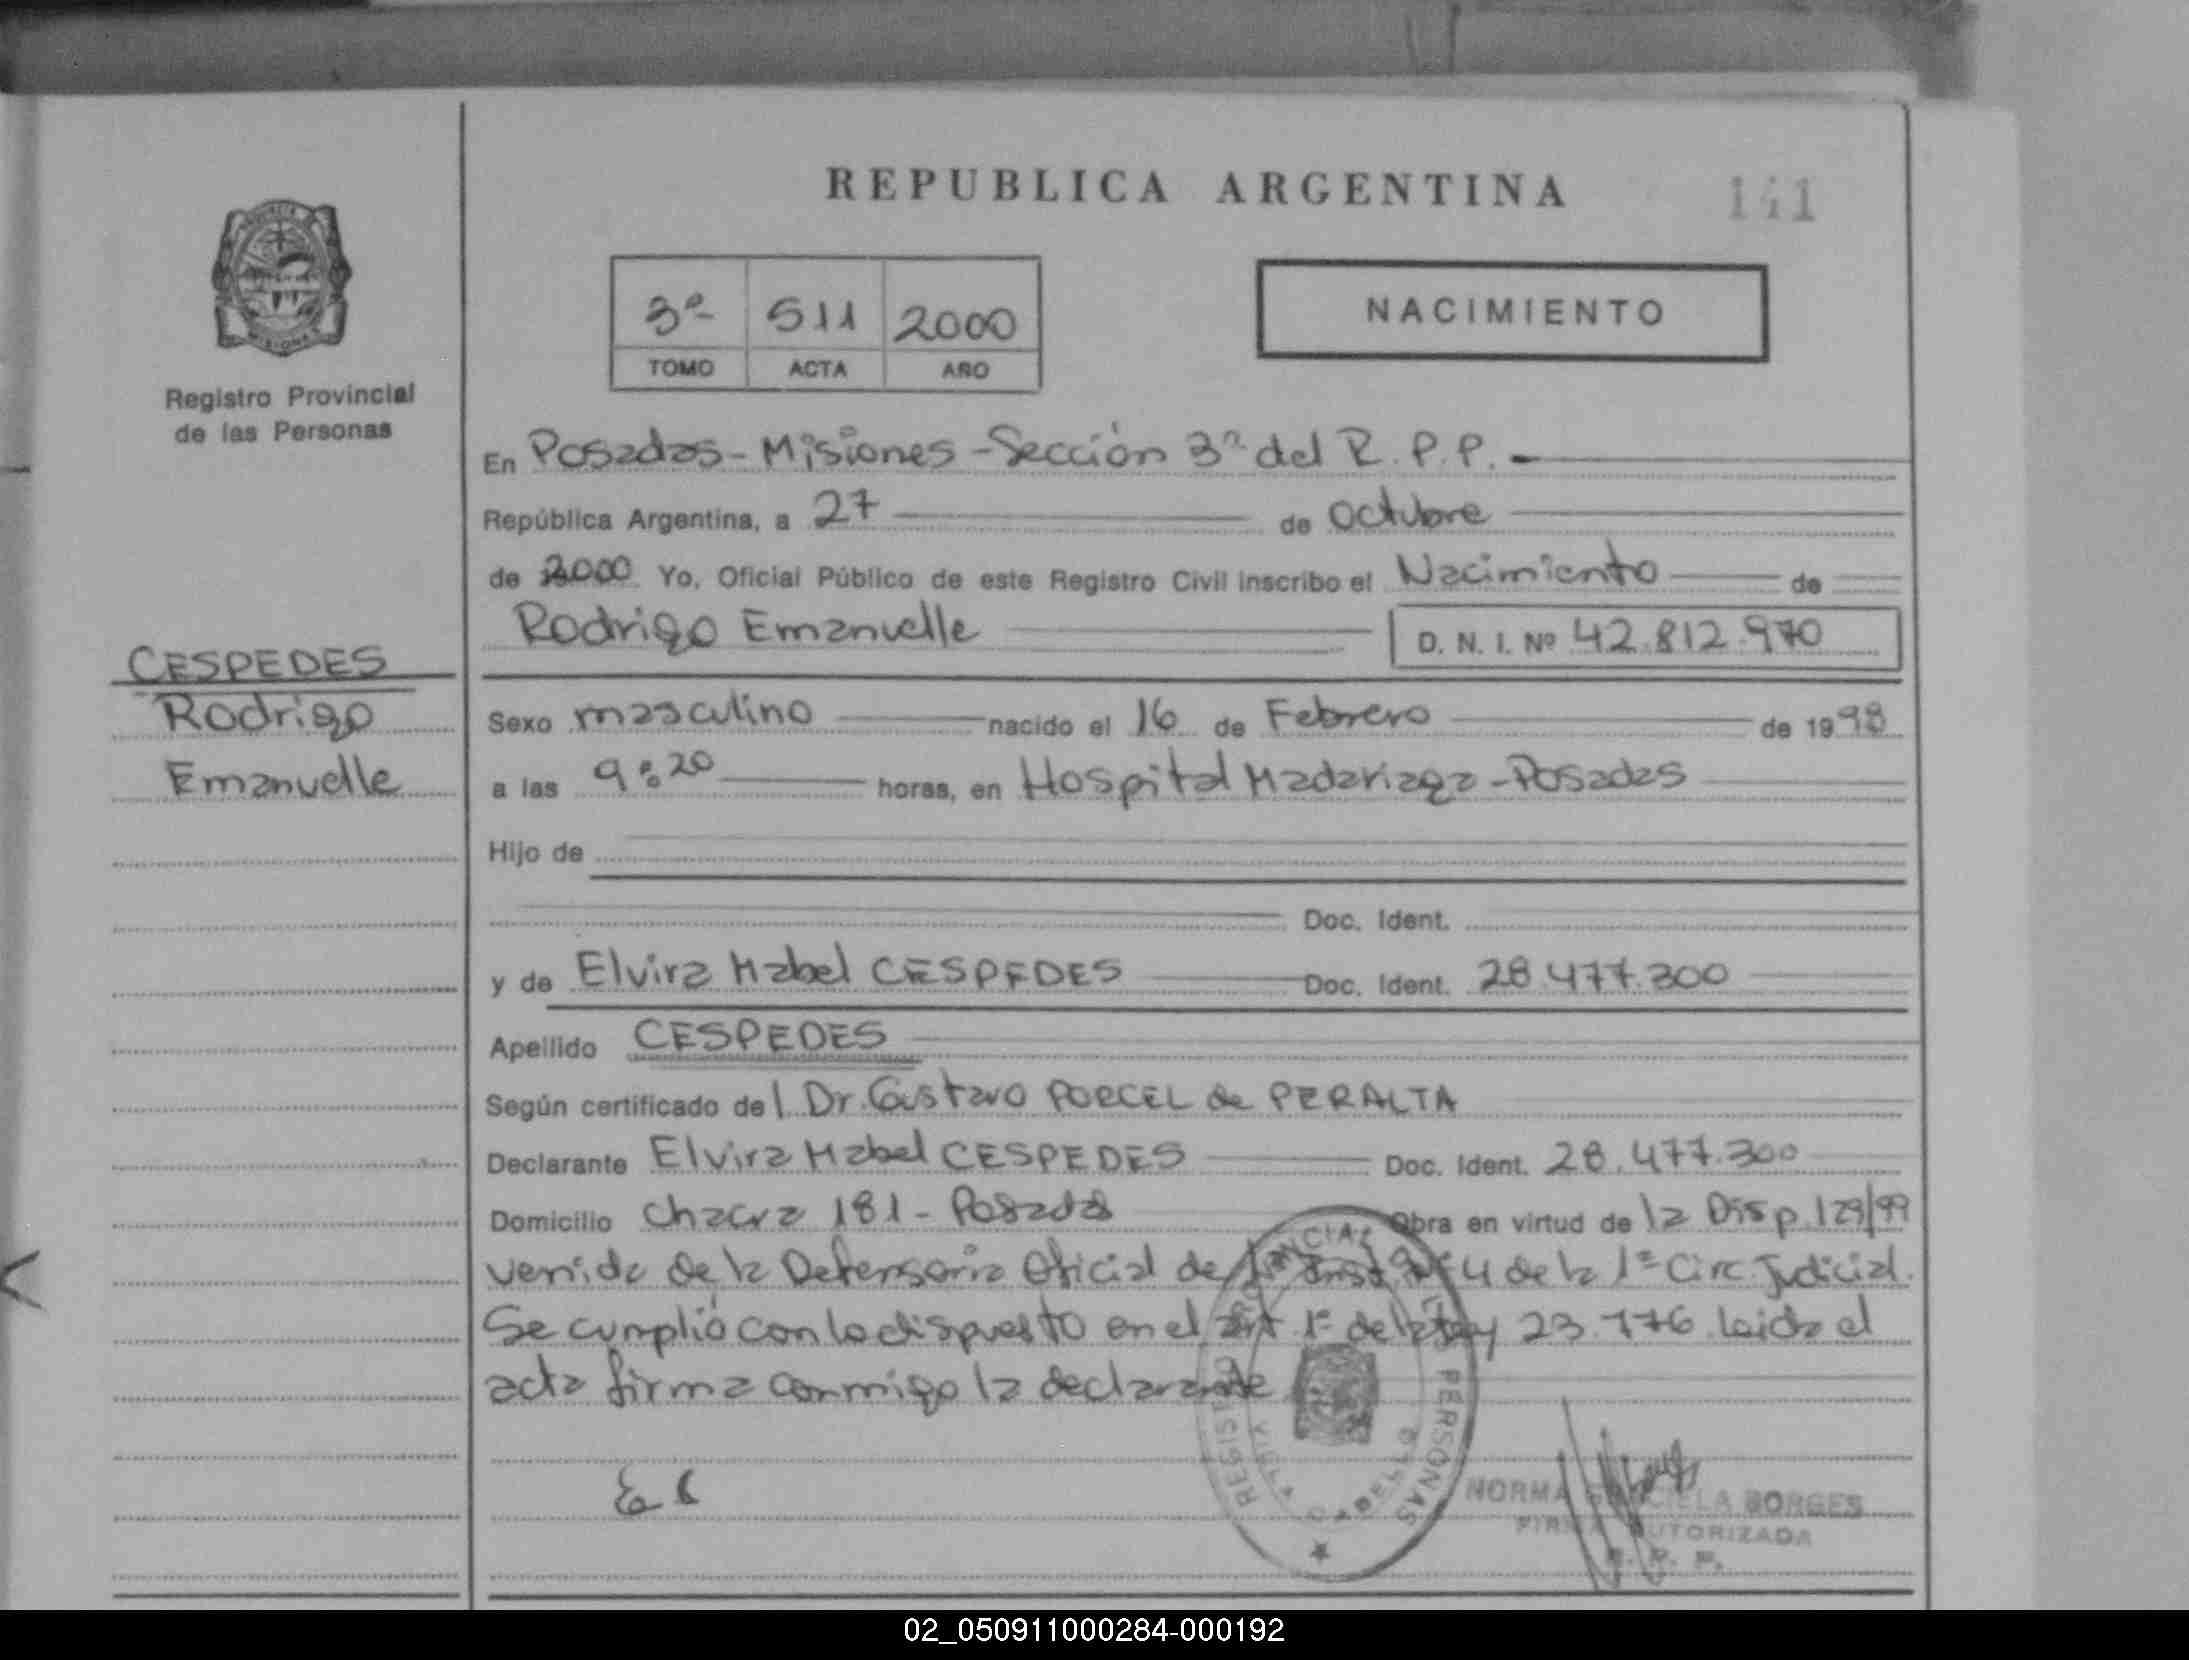 REPUBLICA ARGENTINA
141
Registro Provincial
de las Personas
3ª 511 2000
TOMO ACTA AÑO
NACIMIENTO
En Posadas - Misiones - Sección 3ª del R. P. P. -
República Argentina, a 27 de Octubre
de 2000 Yo, Oficial Público de este Registro Civil inscribo el Nacimiento de
Rodrigo Emanuelle D. N. I. Nº 42.812.970
CESPEDES
Rodrigo
Emanuelle
Sexo masculino nacido el 16 de Febrero de 1998
a las 9:20 horas, en Hospital Madariaga - Posadas
Hijo de
Doc. Ident.
y de Elvira Mabel CESPEDES Doc. Ident. 28.477.300
Apellido CESPEDES
Según certificado del Dr. Gustavo PORCEL de PERALTA
Declarante Elvira Mabel CESPEDES Doc. Ident. 28.477.300
Domicilio Chacra 181 - Posadas Obra en virtud de la Disp. 129/99
venida de la Defensoria Oficial de Nº 4 de la 1ª Circ. Judicial.
Se cumplió con lo dispuesto en el art. 1º de la Ley 23.776 leida el
acta firma conmigo la declarante
REGISTRO PROVINCIAL DE LAS PERSONAS
VILLA CABELLO
NORMA GRACIELA BORGES
FIRMA AUTORIZADA
R. P. P.
02_050911000284-000192